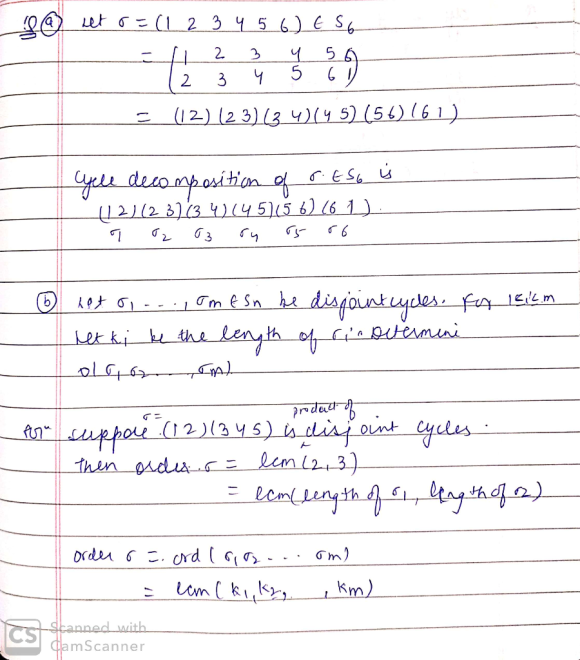 (a) Let σ = (1 2 3 4 5 6) ∈ S6
= (1 2 3 4 5 6
2 3 4 5 6 1)
= (12) (23) (3 4) (4 5) (56) (6 1)
Cycle decomposition of σ ∈ S6 is
(12) (2 3) (3 4) (4 5) (5 6) (6 1).
σ1 σ2 σ3 σ4 σ5 σ6
(b) Let σ1 - - - , σm ∈ Sn be disjoint cycles. For 1≤i≤m
Let ki be the length of σi. Determine
o(σ1 σ2 ... , σm).
suppose σ= (12) (3 4 5) is product of disjoint cycles.
Then order σ = lcm (2, 3)
= lcm (length of σ1, length of σ2)
order σ = ord (σ1 σ2 - - - σm)
= lcm (k1, k2, , km)
CS Scanned with
CamScanner